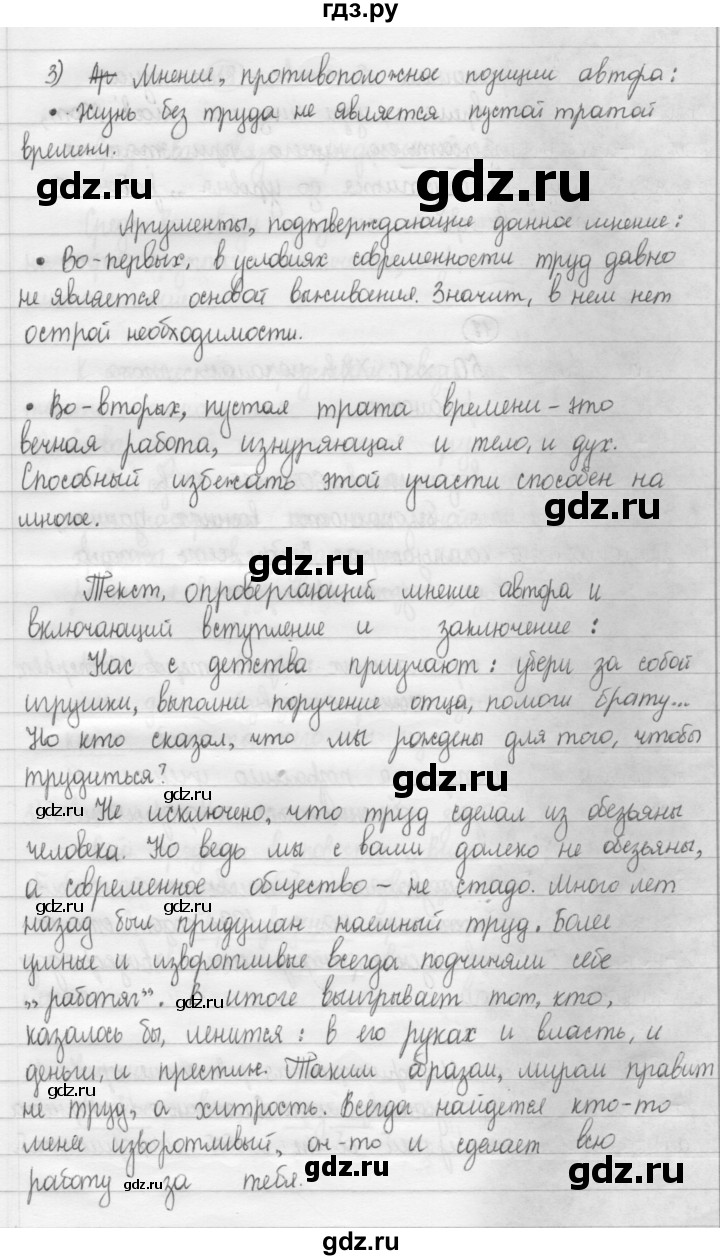 гдз.ру
3) Ар Мнение, противоположное позиции автора:
• Жизнь без труда не является пустой тратой
времени.
gdz.ru gdz.ru
Аргументы, подтверждающие данное мнение:
• Во-первых, в условиях современности труд давно
не является основой выживания. Значит, в нем нет
острой необходимости.
• Во-вторых, пустая трата времени - это
вечная работа, изнуряющая и тело, и дух.
Способный избежать этой участи способен на
многое.
gdz.ru
gdz.ru
Текст, опровергающий мнение автора и
включающий вступление и заключение:
Нас с детства приучают: убери за собой
игрушки, выполни поручение отца, помоги брату...
Но кто сказал, что мы рождены для того, чтобы
трудиться?
gdz.ru
gdz.ru gdz.ru
Не исключено, что труд сделал из обезьяны
человека. Но ведь мы с вами далеко не обезьяны,
а современное общество - не стадо. Много лет
gdz.ru gdz.ru
назад был придуман наемный труд. Более
умные и изворотливые всегда подчиняли себе
„работяг". В итоге выигрывает тот, кто,
gdz.ru
казалось бы, ленится: в его руках и власть, и
деньги, и престиж. Таким образом, миром правит
gdz.ru gdz.ru
не труд, а хитрость. Всегда найдется кто-то
менее изворотливый, он-то и сделает всю
работу за тебя.
gdz.ru gdz.ru
gdz.ru